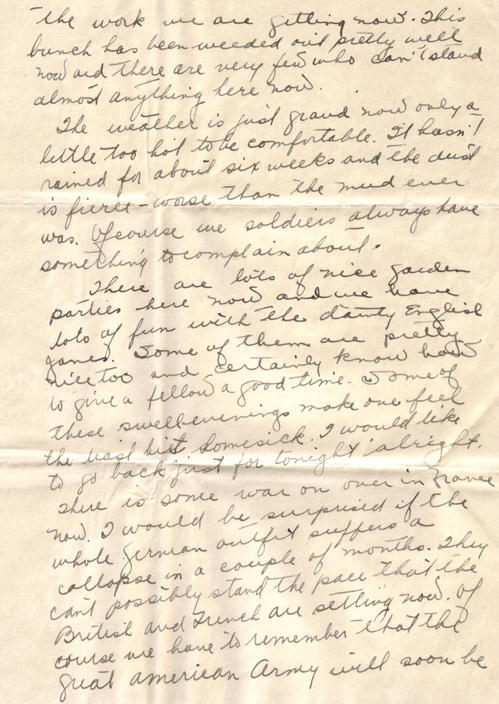 the work we are getting now. This
bunch has been weeded out pretty well
now and there are very few who can't stand
almost anything here now.
The weather is just grand now only a
little too hot to be comfortable. It hasn't
rained for about six weeks and the dust
is fierce - worse than the mud ever
was. Ofcourse we soldiers always have
something to complain about.
There are lots of nice garden
parties here now and we have
lots of fun with the dainty English
janes. Some of them are pretty
nice too and certainly know how
to give a fellow a good time. Some of
these swell evenings make one feel
the least bit homesick. I would like
to go back just for tonight alright.
There is some war on over in France
now. I would be surprised if the
whole german outfit suffers a
collapse in a couple of months. They
can't possibly stand the pace that the
British and French are setting now. Of
course we have to remember that the
great american Army will soon be